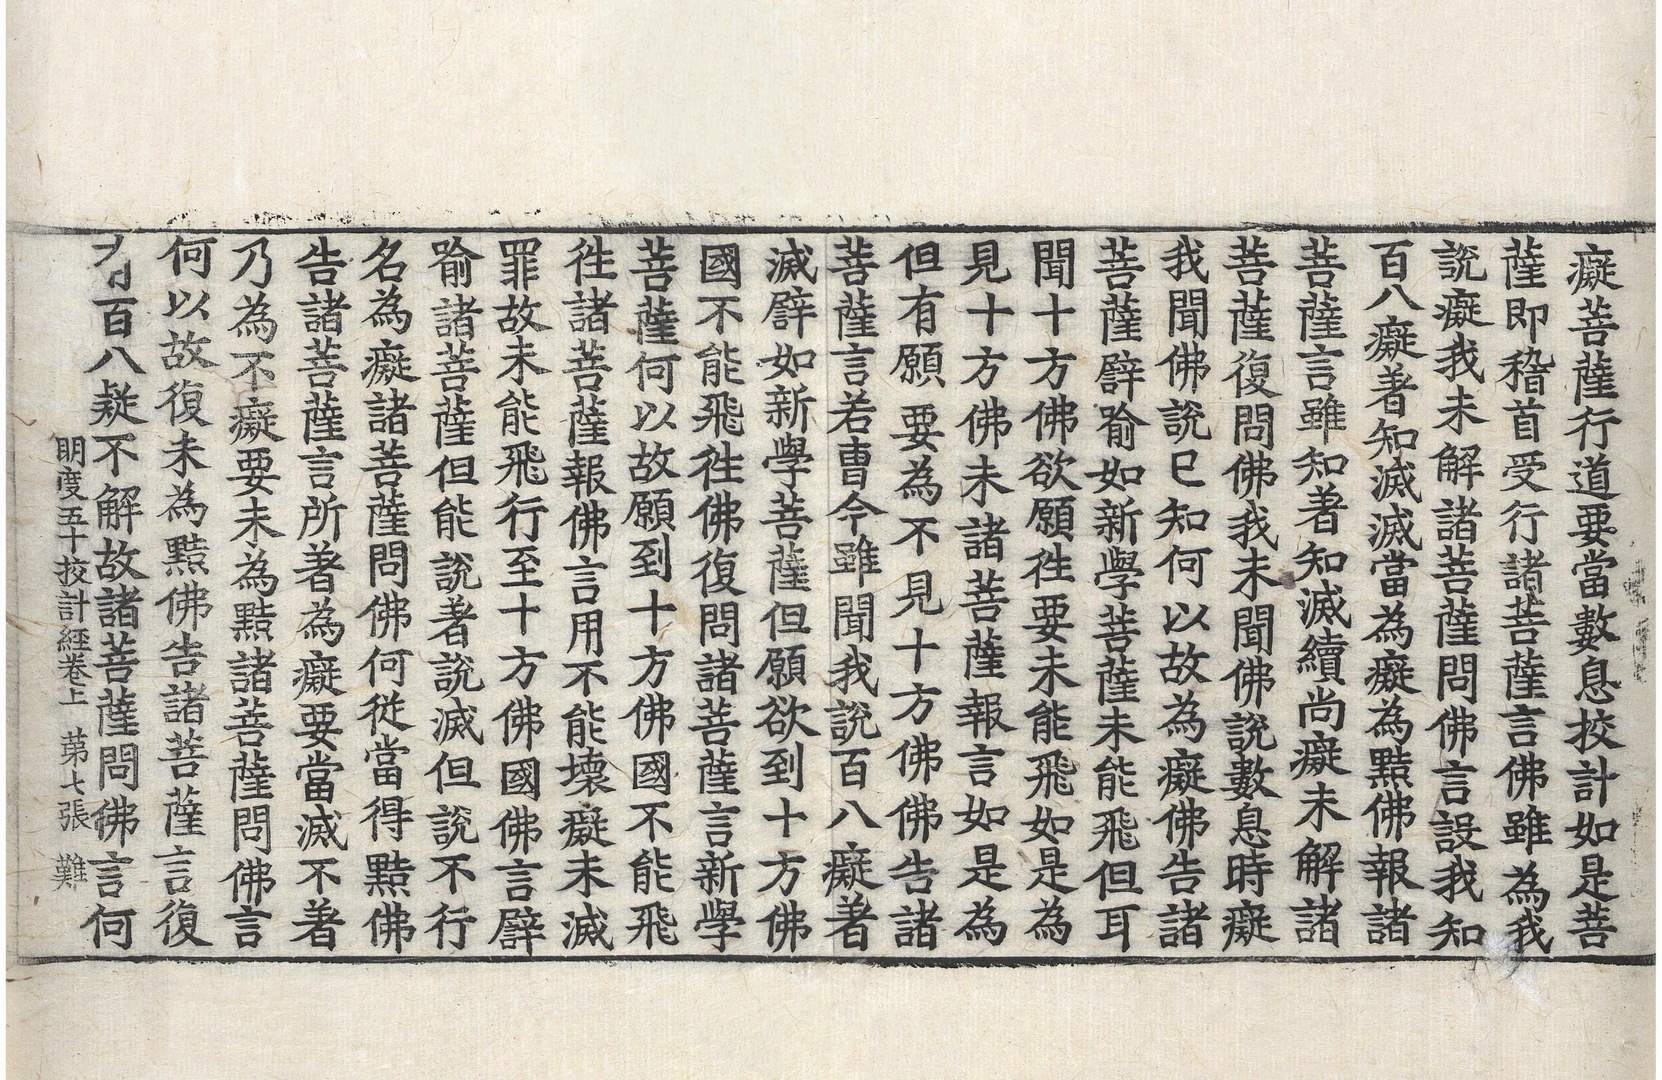 癡菩薩行道要當數息挍計如是菩
薩即稽首受行諸菩薩言佛雖為我
說癡我未解諸菩薩問佛言設我知
百八癡著知滅滅當為癡為黠佛報諸
菩薩言雖知著知滅續尚癡未解諸
菩薩復問佛我未聞佛說數息時癡
我聞佛說已知何以故為癡佛告諸
菩薩譬喻如新學菩薩未能飛但耳
聞十方佛欲願徃要未能飛如是為
見十方佛未諸菩薩報言如是為
但有願要為不見十方佛佛告諸
菩薩言若曹今雖聞我說百八癡著
滅譬如新學菩薩但願欲到十方佛
國不能飛徃佛復問諸菩薩言新學
菩薩何以故願到十方佛國不能飛
徃諸菩薩報佛言用不能壞癡未滅
罪故未能飛行至十方佛國佛言譬
喻諸菩薩但能說著說滅但說不行
名為癡諸菩薩問佛何從當得黠佛
告諸菩薩言所著為癡要當滅不著
乃為不癡要未為黠諸菩薩問佛言
何以故復未為黠佛告諸菩薩言復
有百八疑不解故諸菩薩問佛言何
明度五十挍計經卷上 第七張 難